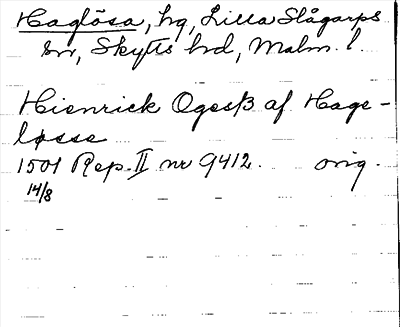 Haglösa, hg, Lilla Slågarps
sn, Skytts hd, Malm. l.
Hienrick Ogesß af Hage-
løsse
1501 Rep. II nr 9412. orig.
14/8